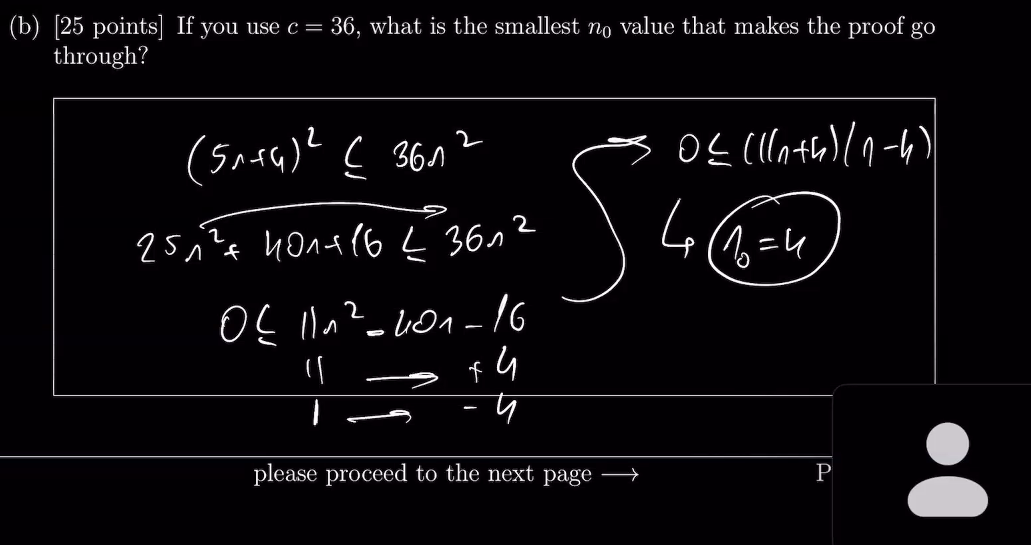 (b) [25 points] If you use c = 36, what is the smallest n₀ value that makes the proof go
through?
(5n+4)² ≤ 36n²
25n² + 40n+16 ≤ 36n²
0 ≤ 11n² - 40n - 16
11 → + 4
1 → - 4
0 ≤ (11n+4)(n-4)
↳ n₀ = 4
please proceed to the next page ⟶
P